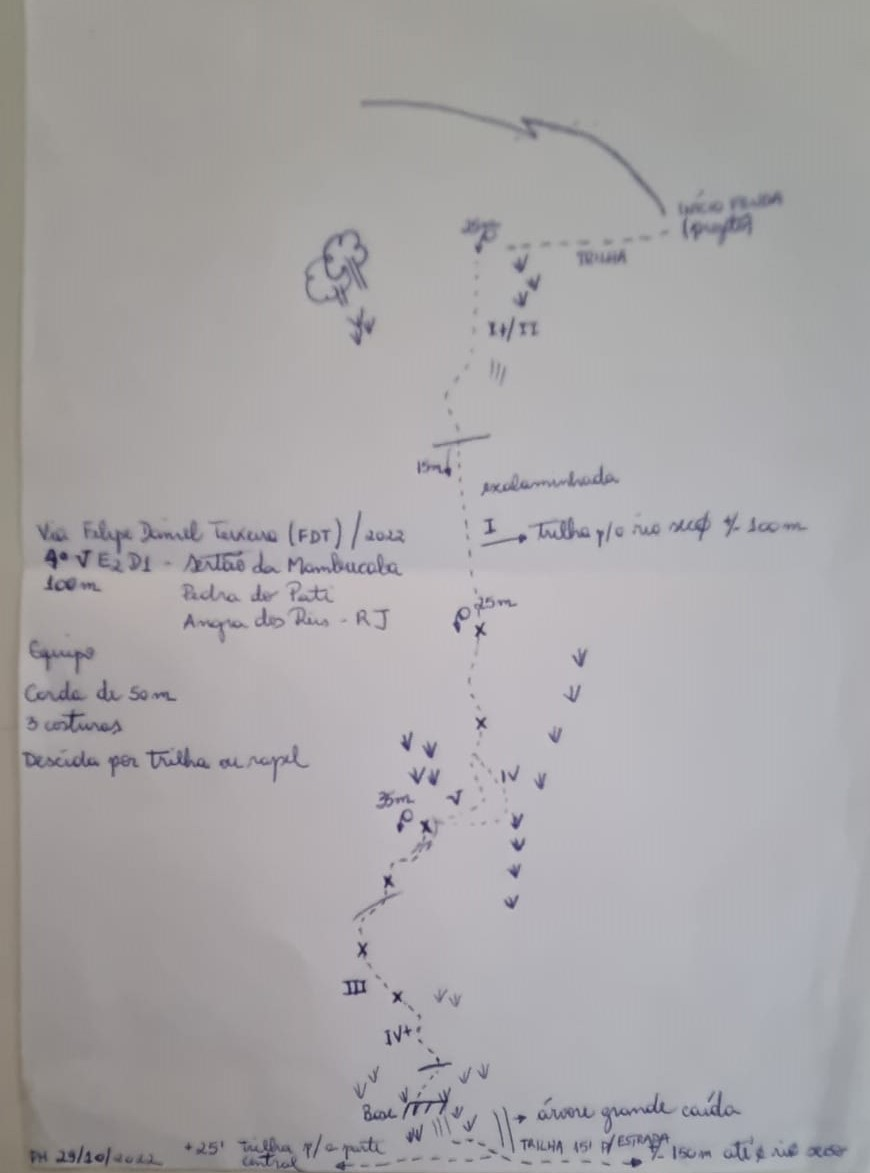 INÍCIO FENDA
(projeto)
25m
TRILHA
I+/II
15m
escalaminhada
I → Trilha p/o rio seco +/- 100m
Via Felipe Daniel Teixeira (FDT) / 2022
4º V E2 D1 - Sertão da Mambucaba
100m
Pedra do Pati
Angra dos Reis - RJ
25m
Equipo
Corda de 50m
3 costuras
Descida por trilha ou rapel
IV
V
35m
III
IV+
Base
→ árvore grande caída
TRILHA 15' P/ESTRADA
PH 29/10/2022
+25' Trilha p/a parte
central
+/- 150m até o rio seco